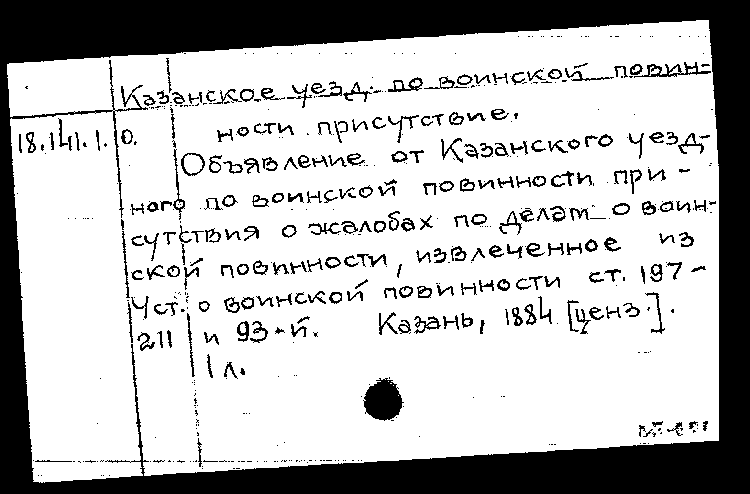 Казанское уезд. по воинской повин-
ности присутствие.
18.141.1.0.
Объявление от Казанского уезд-
ного по воинской повинности при-
сутствия о жалобах по делам о воин-
ской повинности, извлеченное из
Уст. о воинской повинности ст. 197-
211 и 93-й. Казань, 1884 [ценз.].
1 л.